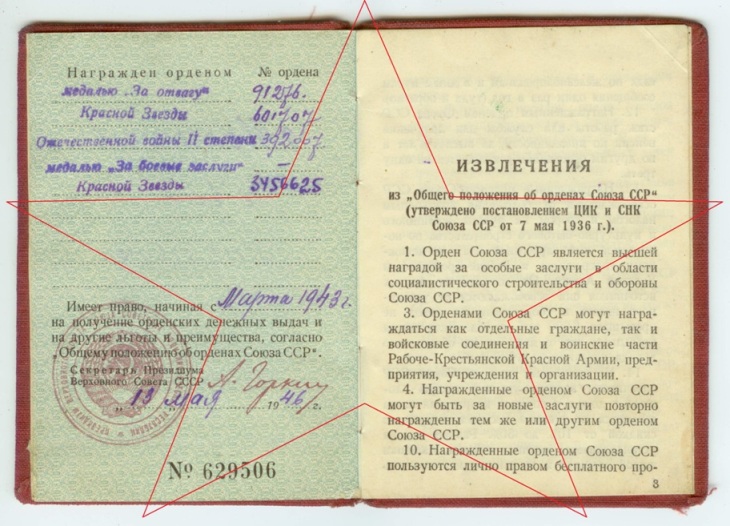 Награжден орденом № ордена
медалью „За отвагу" 91276.
Красной Звезды 601707
Отечественной войны II степени 392007
медалью „За боевые заслуги" —
Красной Звезды 3456625
Имеет право, начиная с Марта 1943 г.
на получение орденских денежных выдач и
на другие льготы и преимущества, согласно
„Общему положению об орденах Союза ССР".
Секретарь Президиума
Верховного Совета СССР А. Горкин
„13" мая 1946 г.
№ 629506
ИЗВЛЕЧЕНИЯ
из „Общего положения об орденах Союза ССР"
(утверждено постановлением ЦИК и СНК
Союза ССР от 7 мая 1936 г.).
1. Орден Союза ССР является высшей
наградой за особые заслуги в области
социалистического строительства и обороны
Союза ССР.
3. Орденами Союза ССР могут награ-
ждаться как отдельные граждане, так и
войсковые соединения и воинские части
Рабоче-Крестьянской Красной Армии, пред-
приятия, учреждения и организации.
4. Награжденные орденом Союза ССР
могут быть за новые заслуги повторно
награждены тем же или другим орденом
Союза ССР.
10. Награжденные орденом Союза ССР
пользуются лично правом бесплатного про-
3